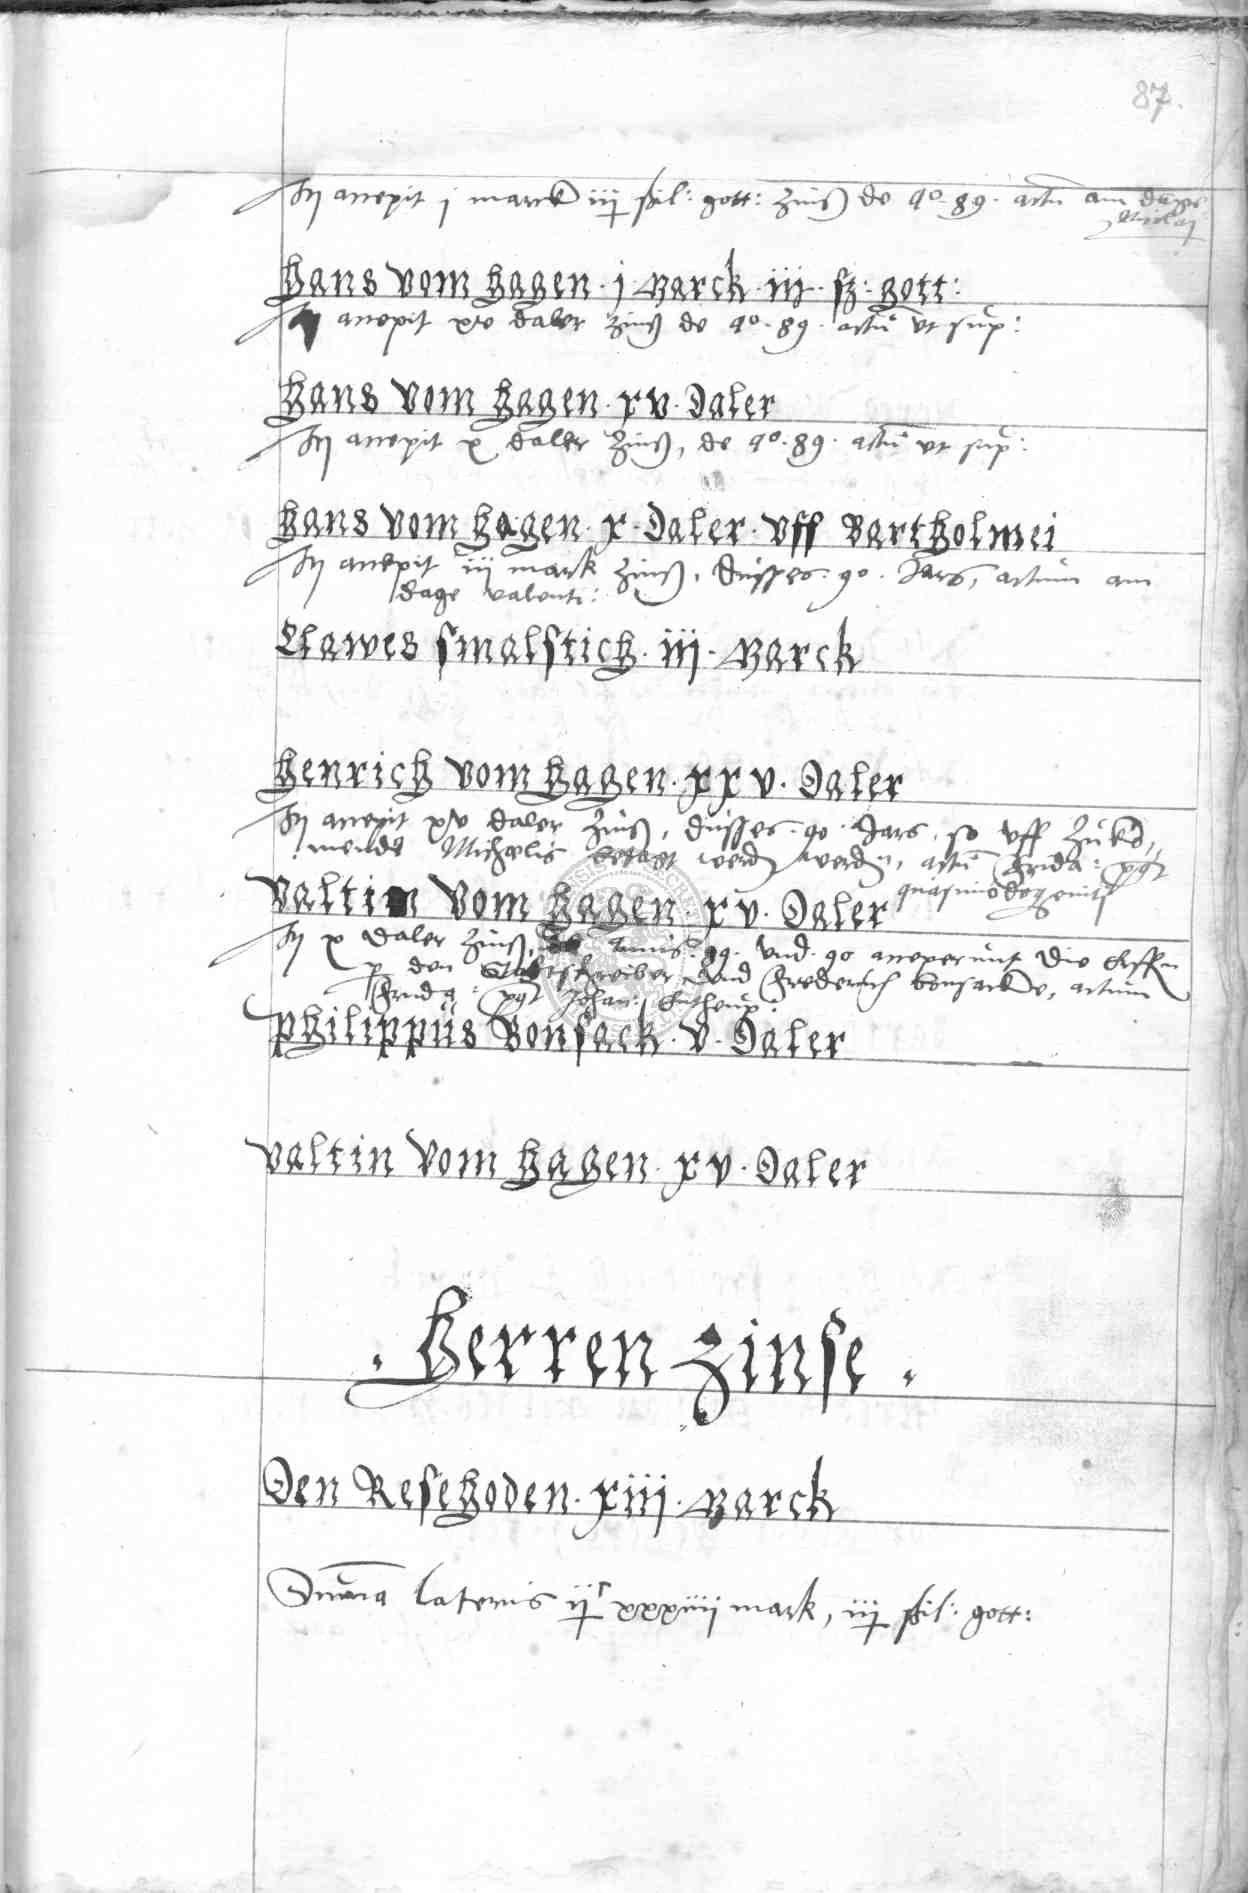 87.
accepit j marck iij ßil: gott: Zinß de ao. 89. actu am dage
Nicolaj
Hans vom Hagen. j. Marck. iij. ß: gott:
accepit xv daler Zinß de ao. 89. actu ut sup:
Hans vom Hagen. xv. Daler
accepit x daler Zinß, de ao. 89. actu ut sup:
Hans vom Hagen. x. Daler. Uff Bartholmei
accepit iij mark Zinß, dusses. 90. Jars, actum am
dage valenti:
Clawes smalstich. iij. Marck
Henrich vom Hagen. xxv. Daler
accepit xv daler Zinß, dusses. 90. Jars, so uff Zuko,
mende Michaelis betagt werden, actu Frida: pqt
quasimodogeniti
Valtin vom Hagen. xv. Daler
x daler Zinß, de annis. 89. und. 90 acceperunt die
p den Stadtschreiber und Frederich bonsack, actum
Frida: pqt Johan:
Philippus Bonsack. v. Daler
Valtin vom Hagen. xv. Daler
. Herren Zinse .
Den Resehoden. xiij. Marck
Suma lateris ij xxxiiij mark, iij ßil: gott: